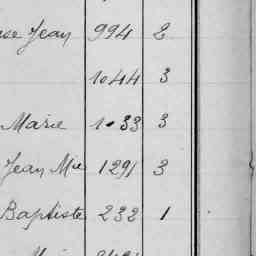 Jean 994 2
1044 3
Marie 1033 3
Jean Mie 1291 3
Baptiste 232 1